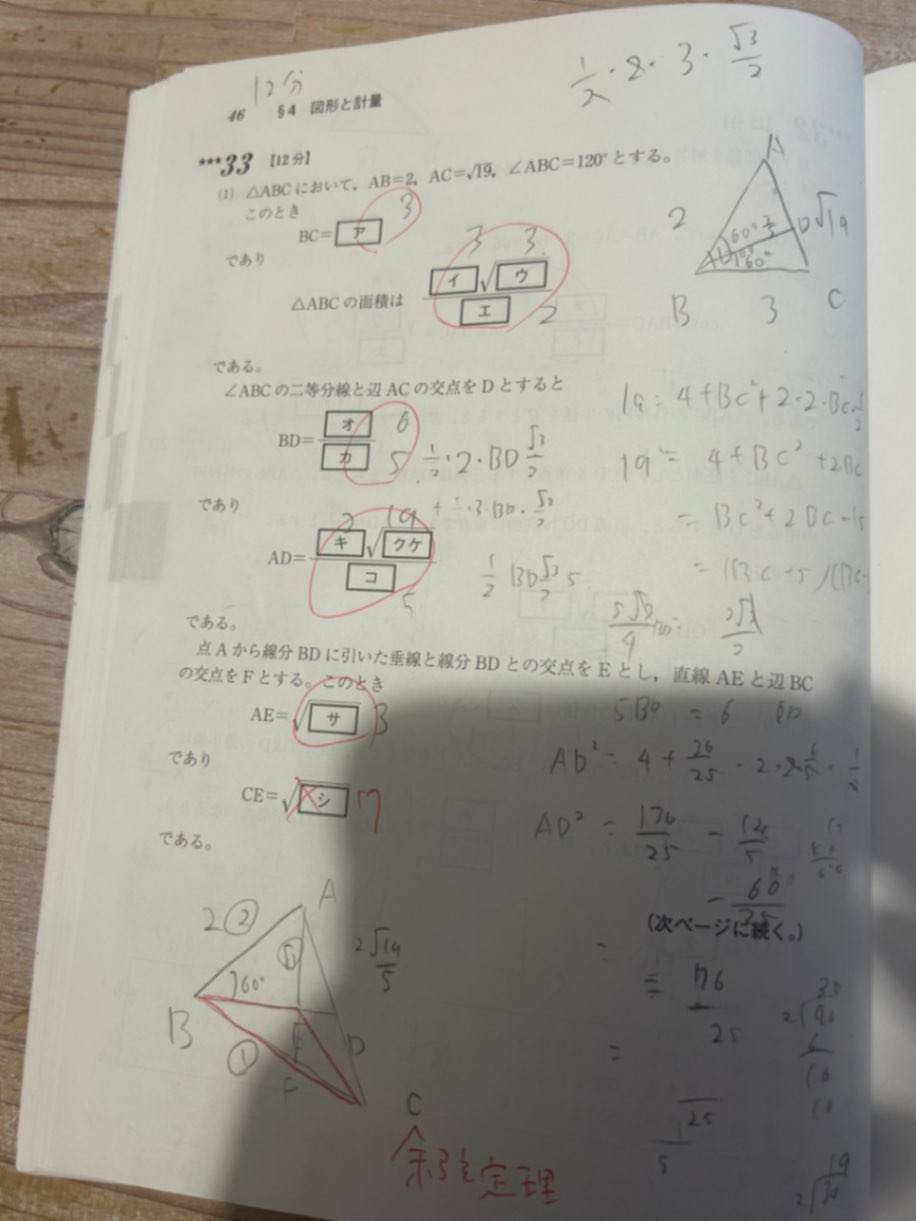 12分
46 §4 図形と計量
1/2・2・3・√3/2
***33 【12分】
(1) △ABCにおいて,AB=2,AC=√19,∠ABC=120°とする。
このとき
BC=ア 3
であり
△ABCの面積は イ√ウ/エ 3 3 2
である。
∠ABCの二等分線と辺ACの交点をDとすると
BD=オ/カ 6 5
であり
AD=キ√クケ/コ 2 19 5
である。
点Aから線分BDに引いた垂線と線分BDとの交点をEとし,直線AEと辺BC
の交点をFとする。このとき
AE=√サ 3
であり
CE=√シ 7
である。
(次ページに続く。)
A
2
60°
D √19
60°
B 3 C
19 = 4+BC²+2・2・BC・
19 = 4+BC²+2BC
1/2・2・BD √3/2
+1/2・3・BD・√3/2
1/2 BD √3/2 5
5BD = 6
AD² =
AD² =
A
2 ②
60°
2√19/5
B
E
D
①
F
C
余弦定理